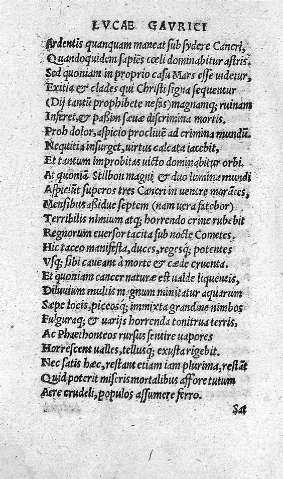 LVCAE GAVRICI
Ardentis quanquam maneat sub sydere Cancri,
Quandoquidem sapiēs cœli dominabitur astris.
Sed quoniam in proprio casa Mars esse uidetur,
Exitia & clades qui Christi signa sequentur
(Dij tantū prophibete nefas) magnamq; ruinam
Inferet, & passim scæua discrimina mortis.
Proh dolor, aspicio procliuē ad crimina mundū.
Nequitia insurget, uirtus calcata iacebit,
Et tantum improbitas uicto dominabitur orbi.
At quoniā Stilbon magnū & duo lumina mundi
Aspiciūt superos tres Cancri in uentre morātes,
Mensibus aßidue septem (nam uera fatebor)
Terribilis nimium atq; horrendo crine rubebit
Regnorum euersor tacita sub nocte Cometes.
Hic taceo manifesta, duces, regesq; potentes
Vsq; sibi caueant à morte & cæde cruenta.
Et quoniam cancer naturæ est ualde liquentis,
Diluuium multis magnum minitatur aquarum
Sæpe locis, piceosq; immixta grandine nimbos
Fulguraq; & uarijs horrenda tonitrua terris,
Ac Phaethonteos rursus sentire uapores
Horrescent ualles, tellusq; exusta rigebit.
Nec satis hæc, restant etiam iam plurima, restāt
Quid poterit miseris mortalibus affore tutum
Aere crudeli, populos assumere ferro.
Sat